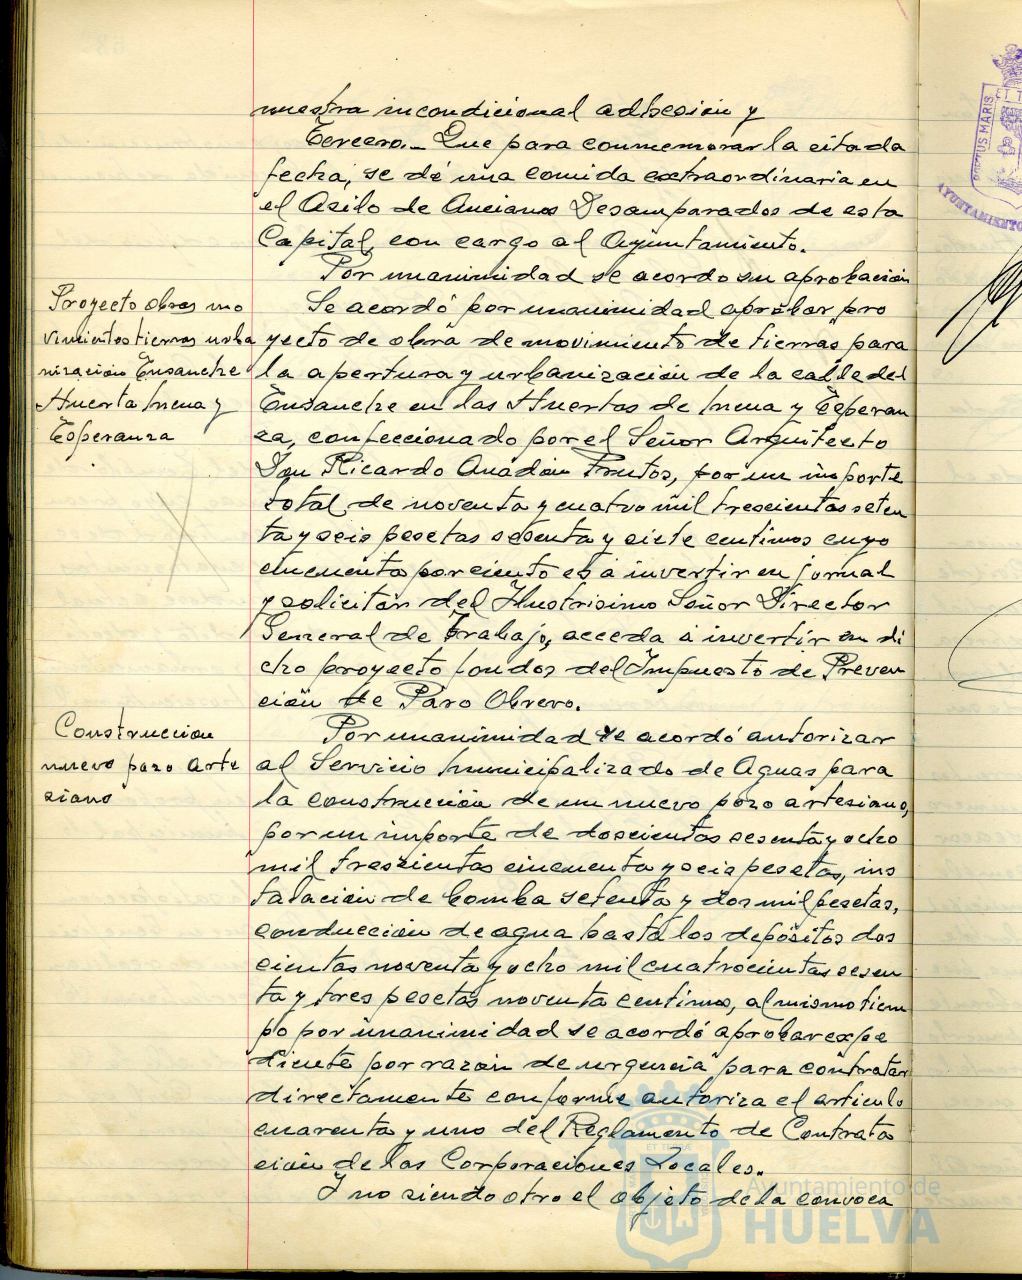 nuestra incondicional adhesión y
Tercero.- Que para conmemorar la citada
fecha, se dé una comida extraordinaria en
el Asilo de Ancianos Desamparados de esta
Capital, con cargo al Ayuntamiento.
Por unanimidad se acordo su aprobación
Proyecto obras mo
vimientos tierras urba
nización Ensanche
Huerta Mena y
Esperanza
Se acordó por unanimidad aprobar pro
yecto de obra de movimiento de tierras para
la apertura y urbanización de la calle del
Ensanche en las Huertas de Mena y Esperan
za, confeccionado por el Señor Arquitecto
Don Ricardo Anadón Frutos, por un importe
total de noventa y cuatro mil trescientas seten
ta y seis pesetas sesenta y siete centimos cuyo
cincuenta por ciento es a invertir en jornal
y solicitar del Ilustrisimo Señor Director
General de Trabajo, acceda a invertir en di
cho proyecto fondos del Impuesto de Preven
ción de Paro Obrero.
Construccion
nuevo pozo arte
siano
Por unanimidad se acordó autorizar
al Servicio Municipalizado de Aguas para
la construcción de un nuevo pozo artesiano,
por un importe de doscientas sesenta y ocho
mil trescientas cincuenta y seis pesetas, ins
talación de bomba setenta y dos mil pesetas,
conducción de agua hasta los depósitos dos
cientas noventa y ocho mil cuatrocientas sesen
ta y tres pesetas noventa centimos, al mismo tiem
po por unanimidad se acordó aprobar expe
diente por razón de urgencia para contratar
directamente conforme autoriza el articulo
cuarenta y uno del Reglamento de Contrata
ción de las Corporaciones Locales.
Y no siendo otro el objeto de la convoca
Ayuntamiento de
HUELVA
MARIS
AYUNTAMIENTO